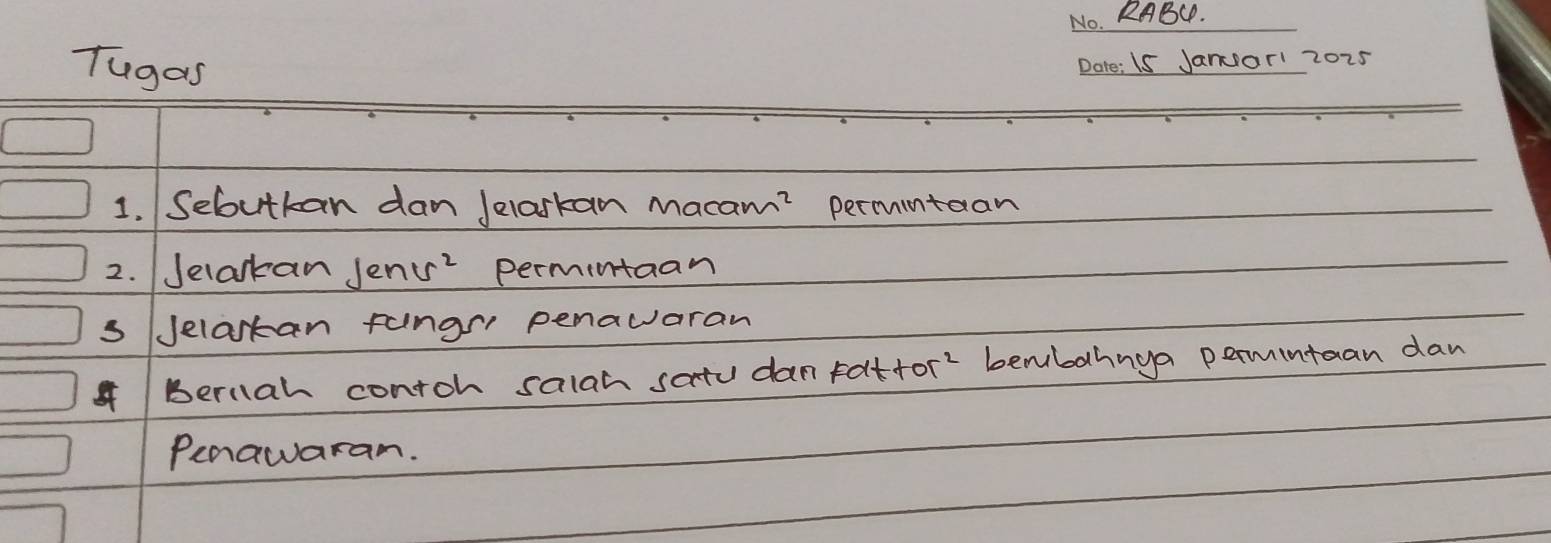 No. RABU.
Tugas
Date: 15 Januari 2025
1. Sebutkan dan Jelaskan Macam² permintaan
2. Jelaskan Jenis² permintaan
3 Jelaskan fungsi penawaran
4 Berilah contoh salah satu dari faktor² berubahnya permintaan dan
Penawaran.